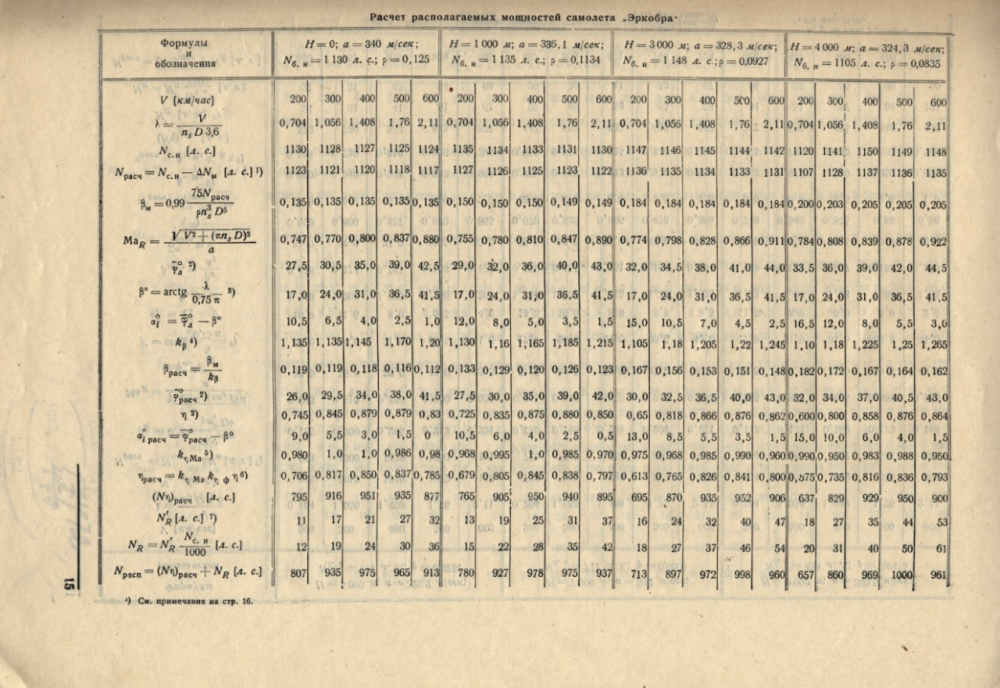 Расчет располагаемых мощностей самолета „Эркобра“
Формулы и обозначения | H = 0; a = 340 м/сек; N б. н = 1 130 л. с.; ρ = 0,125 | H = 1 000 м; a = 336,1 м/сек; N б. н = 1 135 л. с.; ρ = 0,1134 | H = 3 000 м; a = 328,3 м/сек; N б. н = 1 148 л. с.; ρ = 0,0927 | H = 4 000 м; a = 324,3 м/сек; N б. н = 1105 л. с.; ρ = 0,0835
V [км/час] 200 300 400 500 600 200 300 400 500 600 200 300 400 500 600 200 300 400 500 600
λ = V / n_s D 3,6 0,704 1,056 1,408 1,76 2,11 0,704 1,056 1,408 1,76 2,11 0,704 1,056 1,408 1,76 2,11 0,704 1,056 1,408 1,76 2,11
N с.н [л. с.] 1130 1128 1127 1125 1124 1135 1134 1133 1131 1130 1147 1146 1145 1144 1142 1120 1141 1150 1149 1148
N расч = N с.н — ΔN м [л. с.] ¹) 1123 1121 1120 1118 1117 1127 1126 1125 1123 1122 1136 1135 1134 1133 1131 1107 1128 1137 1136 1135
β м = 0,99 75N расч / ρn_s³ D⁵ 0,135 0,135 0,135 0,135 0,135 0,150 0,150 0,150 0,149 0,149 0,184 0,184 0,184 0,184 0,184 0,200 0,203 0,205 0,205 0,205
Ma R = √V² + (πn_s D)² / a 0,747 0,770 0,800 0,837 0,880 0,755 0,780 0,810 0,847 0,890 0,774 0,798 0,828 0,866 0,911 0,784 0,808 0,839 0,878 0,922
φ̄°л ²) 27,5 30,5 35,0 39,0 42,5 29,0 32,0 36,0 40,0 43,0 32,0 34,5 38,0 41,0 44,0 33,5 36,0 39,0 42,0 44,5
β° = arctg λ / 0,75 π ³) 17,0 24,0 31,0 36,5 41,5 17,0 24,0 31,0 36,5 41,5 17,0 24,0 31,0 36,5 41,5 17,0 24,0 31,0 36,5 41,5
α°I = φ̄°л — β° 10,5 6,5 4,0 2,5 1,0 12,0 8,0 5,0 3,5 1,5 15,0 10,5 7,0 4,5 2,5 16,5 12,0 8,0 5,5 3,0
k β ⁴) 1,135 1,135 1,145 1,170 1,20 1,130 1,16 1,165 1,185 1,215 1,105 1,18 1,205 1,22 1,245 1,10 1,18 1,225 1,25 1,265
β расч = β м / k β 0,119 0,119 0,118 0,116 0,112 0,133 0,129 0,120 0,126 0,123 0,167 0,156 0,153 0,151 0,148 0,182 0,172 0,167 0,164 0,162
φ̄°расч ²) 26,0 29,5 34,0 38,0 41,5 27,5 30,0 35,0 39,0 42,0 30,0 32,5 36,5 40,0 43,0 32,0 34,0 37,0 40,5 43,0
η ²) 0,745 0,845 0,879 0,879 0,83 0,725 0,835 0,875 0,880 0,850 0,65 0,818 0,866 0,876 0,862 0,600 0,800 0,858 0,876 0,864
α°I расч = φ̄°расч — β° 9,0 5,5 3,0 1,5 0 10,5 6,0 4,0 2,5 0,5 13,0 8,5 5,5 3,5 1,5 15,0 10,0 6,0 4,0 1,5
k η Ma ⁵) 0,980 1,0 1,0 0,986 0,98 0,968 0,995 1,0 0,985 0,970 0,975 0,968 0,985 0,990 0,960 0,990 0,950 0,983 0,988 0,950
η расч = k η Ma k η ф η ⁶) 0,706 0,817 0,850 0,837 0,785 0,679 0,805 0,845 0,838 0,797 0,613 0,765 0,826 0,841 0,800 0,575 0,735 0,816 0,836 0,793
(Nη) расч [л. с.] 795 916 951 935 877 765 905 950 940 895 695 870 935 952 906 637 829 929 950 900
N′R [л. с.] ⁷) 11 17 21 27 32 13 19 25 31 37 16 24 32 40 47 18 27 35 44 53
N R = N′R N с. н / 1000 [л. с.] 12 19 24 30 36 15 22 28 35 42 18 27 37 46 54 20 31 40 50 61
N расп = (Nη) расч + N R [л. с.] 807 935 975 965 913 780 927 978 975 937 713 897 972 998 960 657 860 969 1000 961
¹) См. примечания на стр. 16.
15